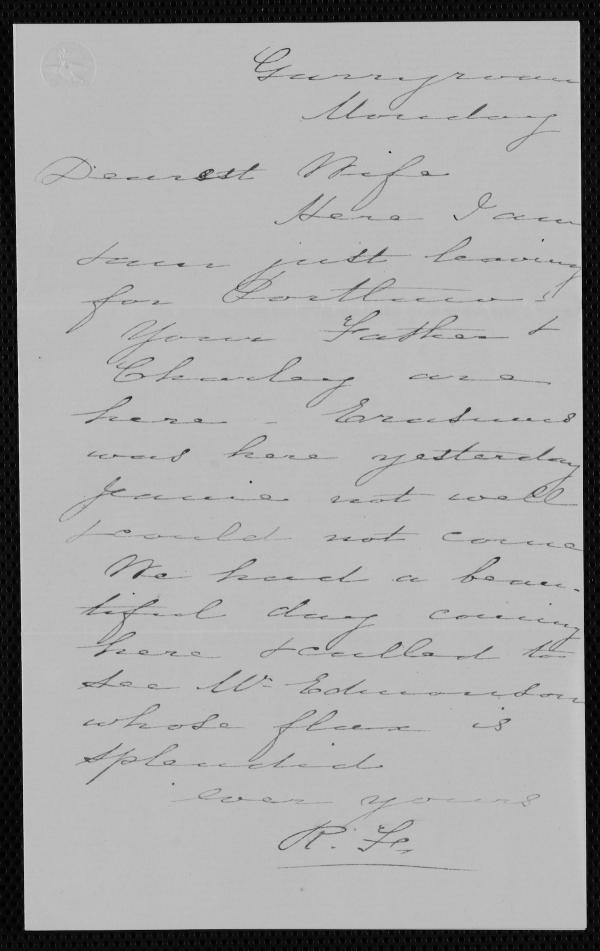 Garryroan
Monday
Dearest Wife
Here I am
& am just leaving
for
Your Father &
Charley are
here - Erasmus
was here yesterday
Jeanie not well
& could not come
We had a beau-
tiful day coming
here & called to
see Mr Edmonson
whose flax is
splendid
ever yours